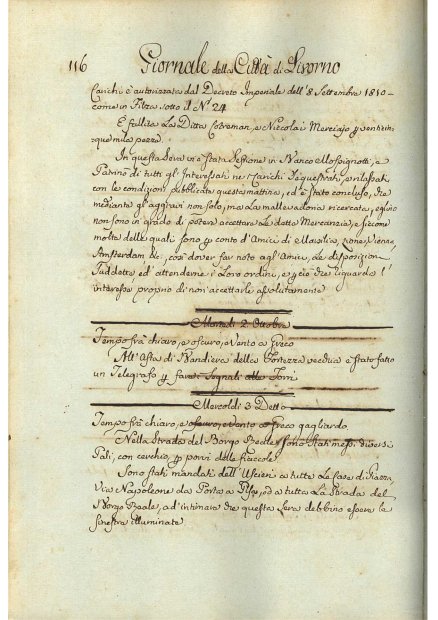 116 Giornale della Città di Livorno
Carichi è autorizzata dal Decreto Imperiale dell' 8 Settembre 1810
come in Filza sotto il N.º 24
È fallita La Ditta Coteman, e Niccolai Merciajo p venticin-
que mila pezze
In questa Sera vi è stata Sessione in Banco a
tutti gl' Interessati ne Carichi Sequestrati, e rilasciati
con le condizioni pubblicate questa mattina, ed è stato concluso, che
mediante gl' aggravi non solo, ma La mallevadoria ricercata, essi non
non sono in grado di potere accettare Le dette Mercanzie, e siccome
molte delle quali sono p conto d' Amici di Marsilia, Vienna,
Amsterdam &c. così dover far noto agl' Amici Le disposizioni
Suddette ed attenderne i Loro ordini, e p ciò che riguarda l'
interesse proprio di non accettarle assolutamente
Martedì 2. Ottobre
Tempo frà chiaro, e oscuro, Vento a Greco
All' Asta di Bandiera della Fortezza vecchia è stato fatto
un Telegrafo p fare i Segnali alle Torri
Mercoldì 3 Detto
Tempo frà chiaro, e oscuro, Vento a Greco gagliardo
Nella Strada del Borgo Reale sono stati messi diversi
Pali, con cerchio, p porvi delle fiaccole
Sono stati mandati dell' Uscieri a tutte Le Case di Piazza,
Via Napoleone da Porta a Pisa, ed a tutta La Strada del
Borgo Reale, ad' intimare che questa Sera debbino essere Le
finestre illuminate